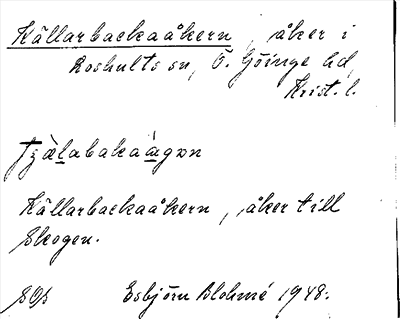 Källarbackaåkern, åker i
Loshults sn, Ö. Göinge hd,
Krist. l.
Källarbackaåkern, åker till
Skogen.
Esbjörn Blohmé 1948.